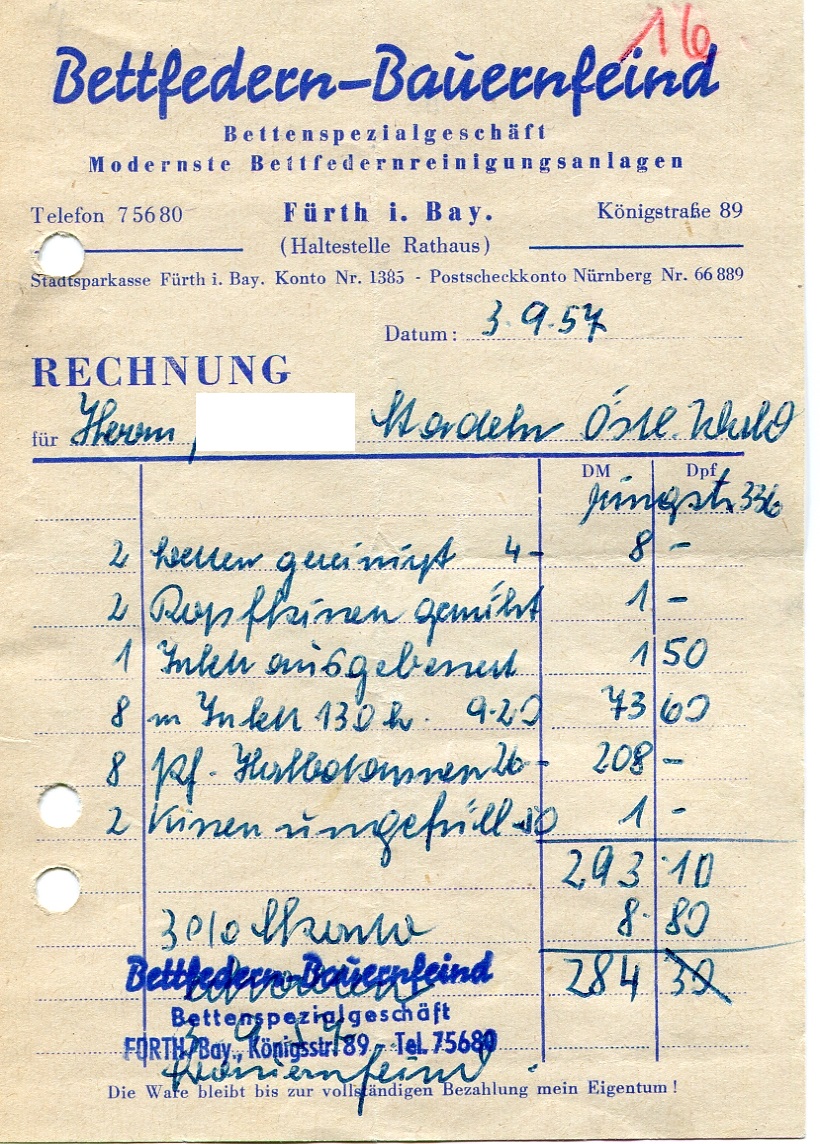 16
Bettfedern-Bauernfeind
Bettenspezialgeschäft
Modernste Bettfedernreinigungsanlagen
Telefon 75680 Fürth i. Bay. Königstraße 89
(Haltestelle Rathaus)
Stadtsparkasse Fürth i. Bay. Konto Nr. 1385 - Postscheckkonto Nürnberg Nr. 66 889
Datum: 3.9.57
RECHNUNG
für Herrn, Stadeln Östl. Wald
DM Dpf
336
2 Betten gereinigt 4- 8 -
2 Kopfkissen 1 -
1 Inlett ausgebessert 1 50
8 m Inlett 130 b. 9.20 73 60
8 Pf. Halbdaunen 26- 208 -
2 Kissen umgefüllt -50 1 -
293 10
3% Skonto 8. 80
284 30
Bettfedern-Bauernfeind
Bettenspezialgeschäft
FÜRTH/Bay., Königsstr. 89 - Tel. 75680
Bauernfeind
Die Ware bleibt bis zur vollständigen Bezahlung mein Eigentum!